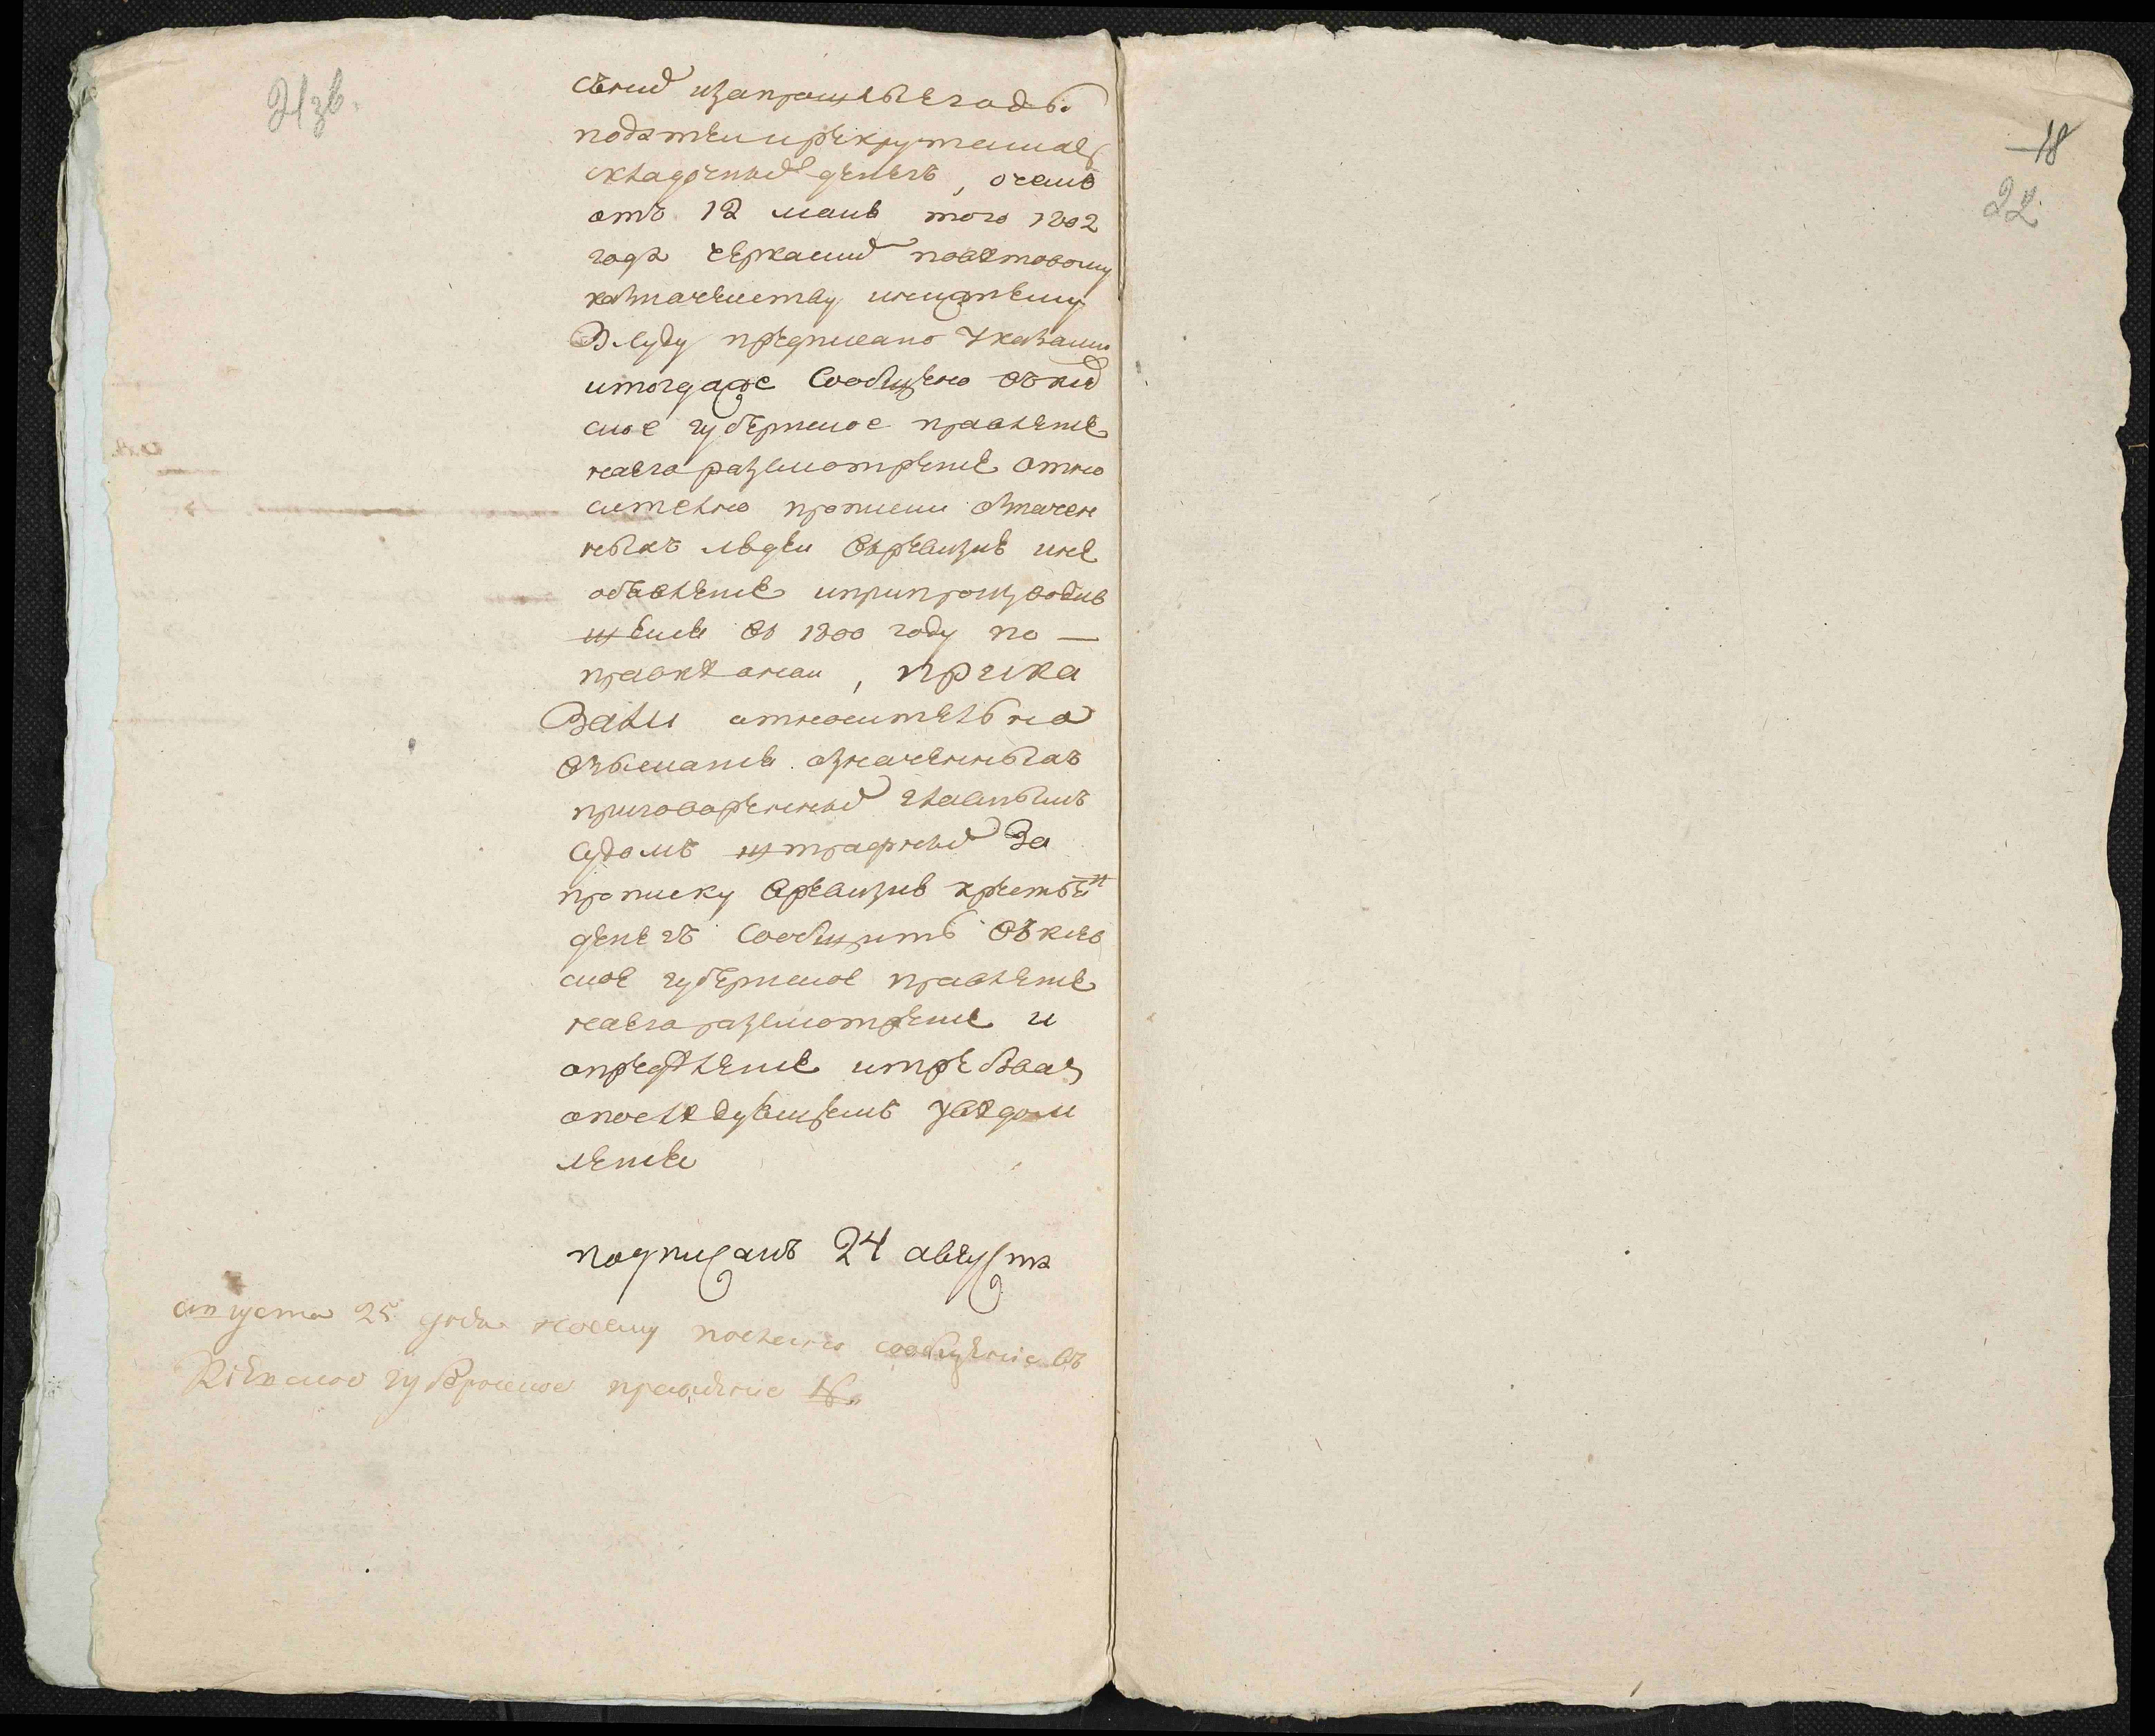 21 зв.
сѣмид изапрошлые годы
податеи ирекрутских
складочных денегъ, очемъ
отъ 12 маия того 1802
года черкаским поветовому
казначеиству инижнему
З. суду предписано Указами
итогдаже Сообщено въкиев
ское губернское правление
наего разсмотрение отно
сително прописи означен
ныхъ людеи въревизию ине
объявление иприпроизводив
шеися въ 1800 году по
правке онои, прика
Зали относительно
взыскания означенныхъ
приговоренных главнымъ
Судомъ штрафных За
прописку вревизию крестьян
денегъ Сообщить въкиев
ское губернское правление
наего разсмотрение и
определение итребовать
опоследующемъ уведом
ления
подписанъ 24 августа
августа 25 года посему послано сообщение въ
Кіевское губернское правление №
18
22